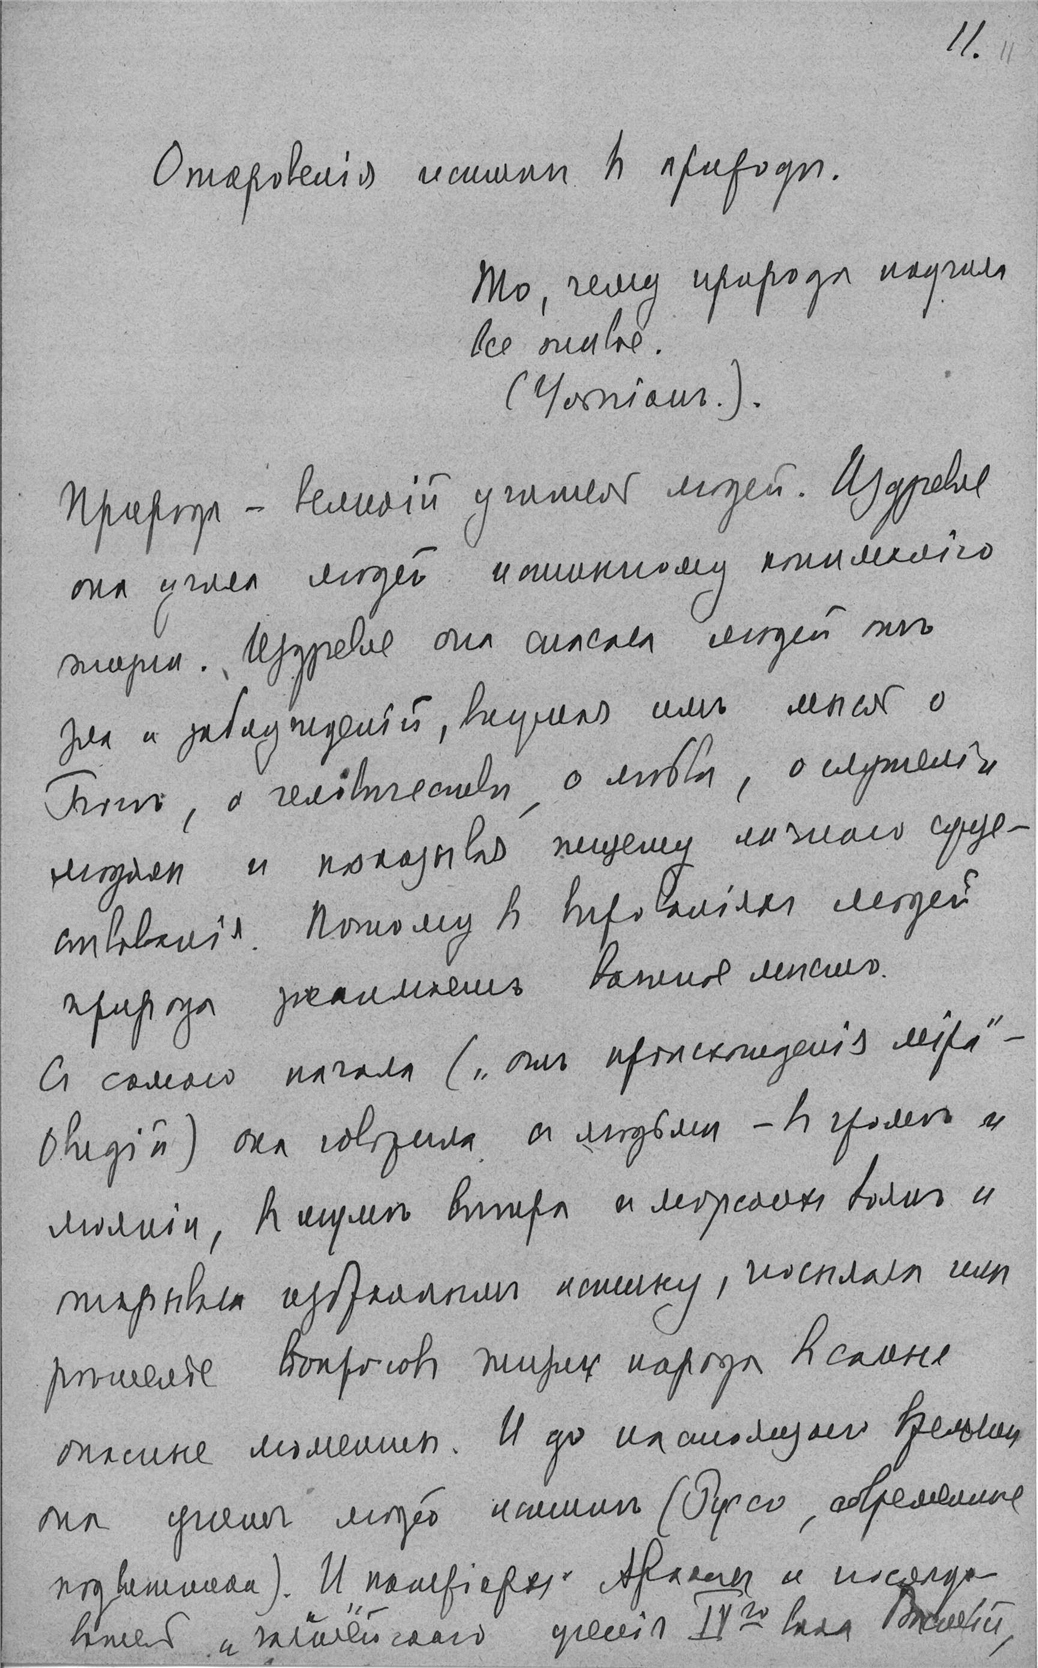 11. 11
Откровенія истины въ природѣ.
То, чему природа научила
все живое.
(Ульпіанъ.).
Природа – великій учитель людей. Издревле
она учила людей истинному пониманію
жизни. Издревле она спасала людей отъ
зла и заблужденій, внушая имъ мысль о
Богѣ, о человѣчествѣ, о любви, о служеніи
людямъ и показывая тщету личнаго суще-
ствованія. Потому въ вѣрованіяхъ людей
природа занимаетъ важное мѣсто.
Съ самаго начала („отъ происхожденія міра" –
Овидій) она говорила съ людьми – въ громѣ и
молніи, въ шумѣ вѣтра и морскихъ волнъ и
открывала избраннымъ истину, посылала имъ
рѣшеніе вопросовъ жизни народа въ самые
опасные моменты. И до настоящаго времени
она учитъ людей истинѣ (Руссо, современные
подвижники). И патріархъ Авраамъ и последо-
ватель ученія IV го вѣка Василій,